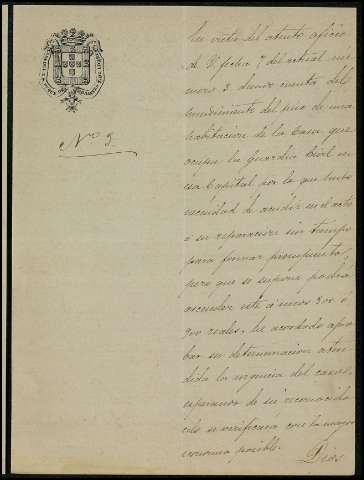 Nº 9.
En vista del atento oficio
de V. fecha 7 del actual nú-
mero 3 dando cuenta del
hundimiento del piso de una
habitacion de la Casa que
ocupa la Guardia Civil en
esa Capital por lo que hubo
necesidad de acudir en el acto
á su reparacion sin tiempo
para formar presupuesto,
pero que se supone podrá
ascender este á unos 800 ó
900 reales, he acordado apro-
bar su determinacion aten-
dida la urgencia del caso,
esperando de su reconocido
celo se verificará con la mayor
economia posible.
Dios